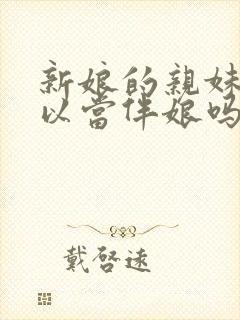 新娘的親妹
以當伴娘嗎
戴啓遠